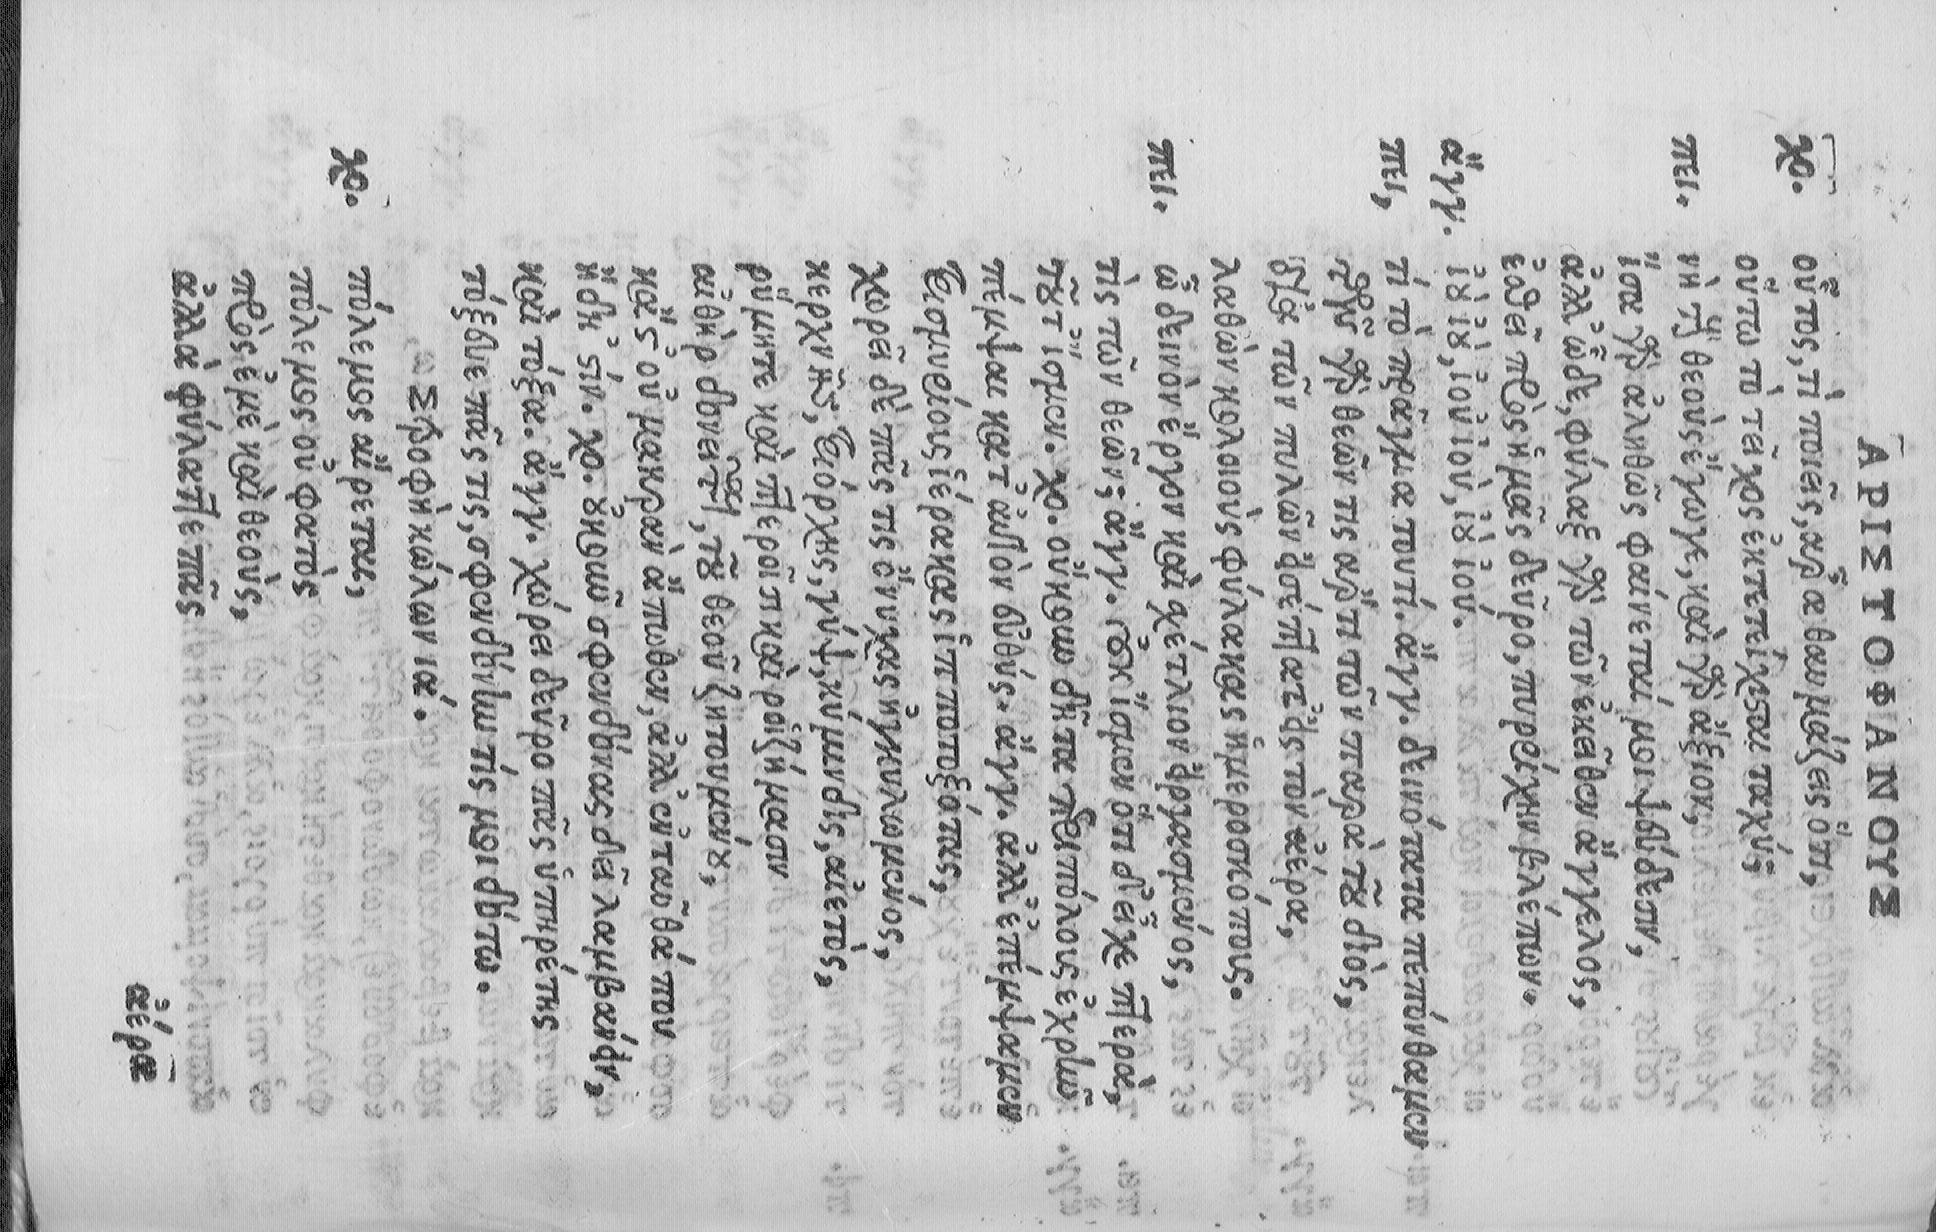 ΑΡΙΣΤΟΦΑΝΟΥΣ
χο. οὗτος, τί ποιεῖς, ἆρα θαυμάζεις ὅτι,
οὕτω τὸ τεῖχος ἐκτετείχισται ταχύ;
πει. νὴ τοὺς θεοὺς ἔγωγε, καὶ γὰρ ἄξιον,
ἴσα γὰρ ἀληθῶς φαίνεταί μοι ψεύδεσιν,
ἀλλ' ὧδε, φύλαξ γὰρ τῶν ἐκεῖθεν ἄγγελος,
ἐσθεῖ πρὸς ἡμᾶς δεῦρο, πυρρίχην βλέπων.
ἄγγ. ἰοὺ ἰού, ἰοὺ ἰού, ἰοὺ ἰού.
πει, τί τὸ πρᾶγμα τουτί. ἄγγ. δεινότατα πεπόνθαμεν
τῶν γὰρ θεῶν τις ἄρτι τῶν παρὰ τοῦ διὸς,
διὰ τῶν πυλῶν εἰσέπτατ' εἰς τὸν ἀέρα,
λαθὼν κολοιοὺς φύλακας ἡμεροσκόπους.
πει. ὦ δεινὸν ἔργον καὶ σχέτλιον εἰργασμένος,
τὶς τῶν θεῶν; ἄγγ. οὐκ ἴσμεν ὅτι δ' εἶχε πτερὰ,
τοῦτ' ἴσμεν. χο. οὔκουν δῆτα περιπόλους ἐχρῆν
πέμψαι κατ' αὐτὸν εὐθύς. ἄγγ. ἀλλ' ἐπέμψαμεν
τρισμυρίους ἱέρακας ἱπποτοξότας,
χωρεῖ δὲ πᾶς τις ὄνυχας ἠγκυλωμένος,
κερχνῂς, τριόρχης, γὺψ, κύμινδις, αἰετὸς,
ῥύμῃ τε καὶ πτεροῖσι καὶ ῥοιζήμασιν
αἰθὴρ δονεῖται, τοῦ θεοῦ ζητουμένου,
κἄς' οὐ μακρὰν ἄπωθεν, ἀλλ' ἐνταῦθά που
ἤδη 'στίν. χο. οὐκοῦν σφενδόνας δεῖ λαμβάνειν,
καὶ τόξα. ἄγγ. χώρει δεῦρο πᾶς ὑπηρέτης
τόξευε πᾶς τις, σφενδόνην τίς μοι δότω.
Στροφὴ κώλων ια.
χο. πόλεμος αἴρεται,
πόλεμος οὐ φατὸς
πρὸς ἐμὲ καὶ θεοὺς,
ἀλλὰ φύλαττε πᾶς
ἀέρα